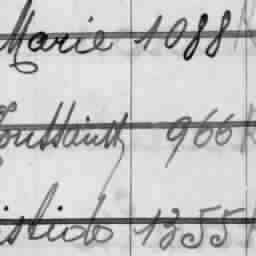 Marie 1088
Toussaint 966
1355